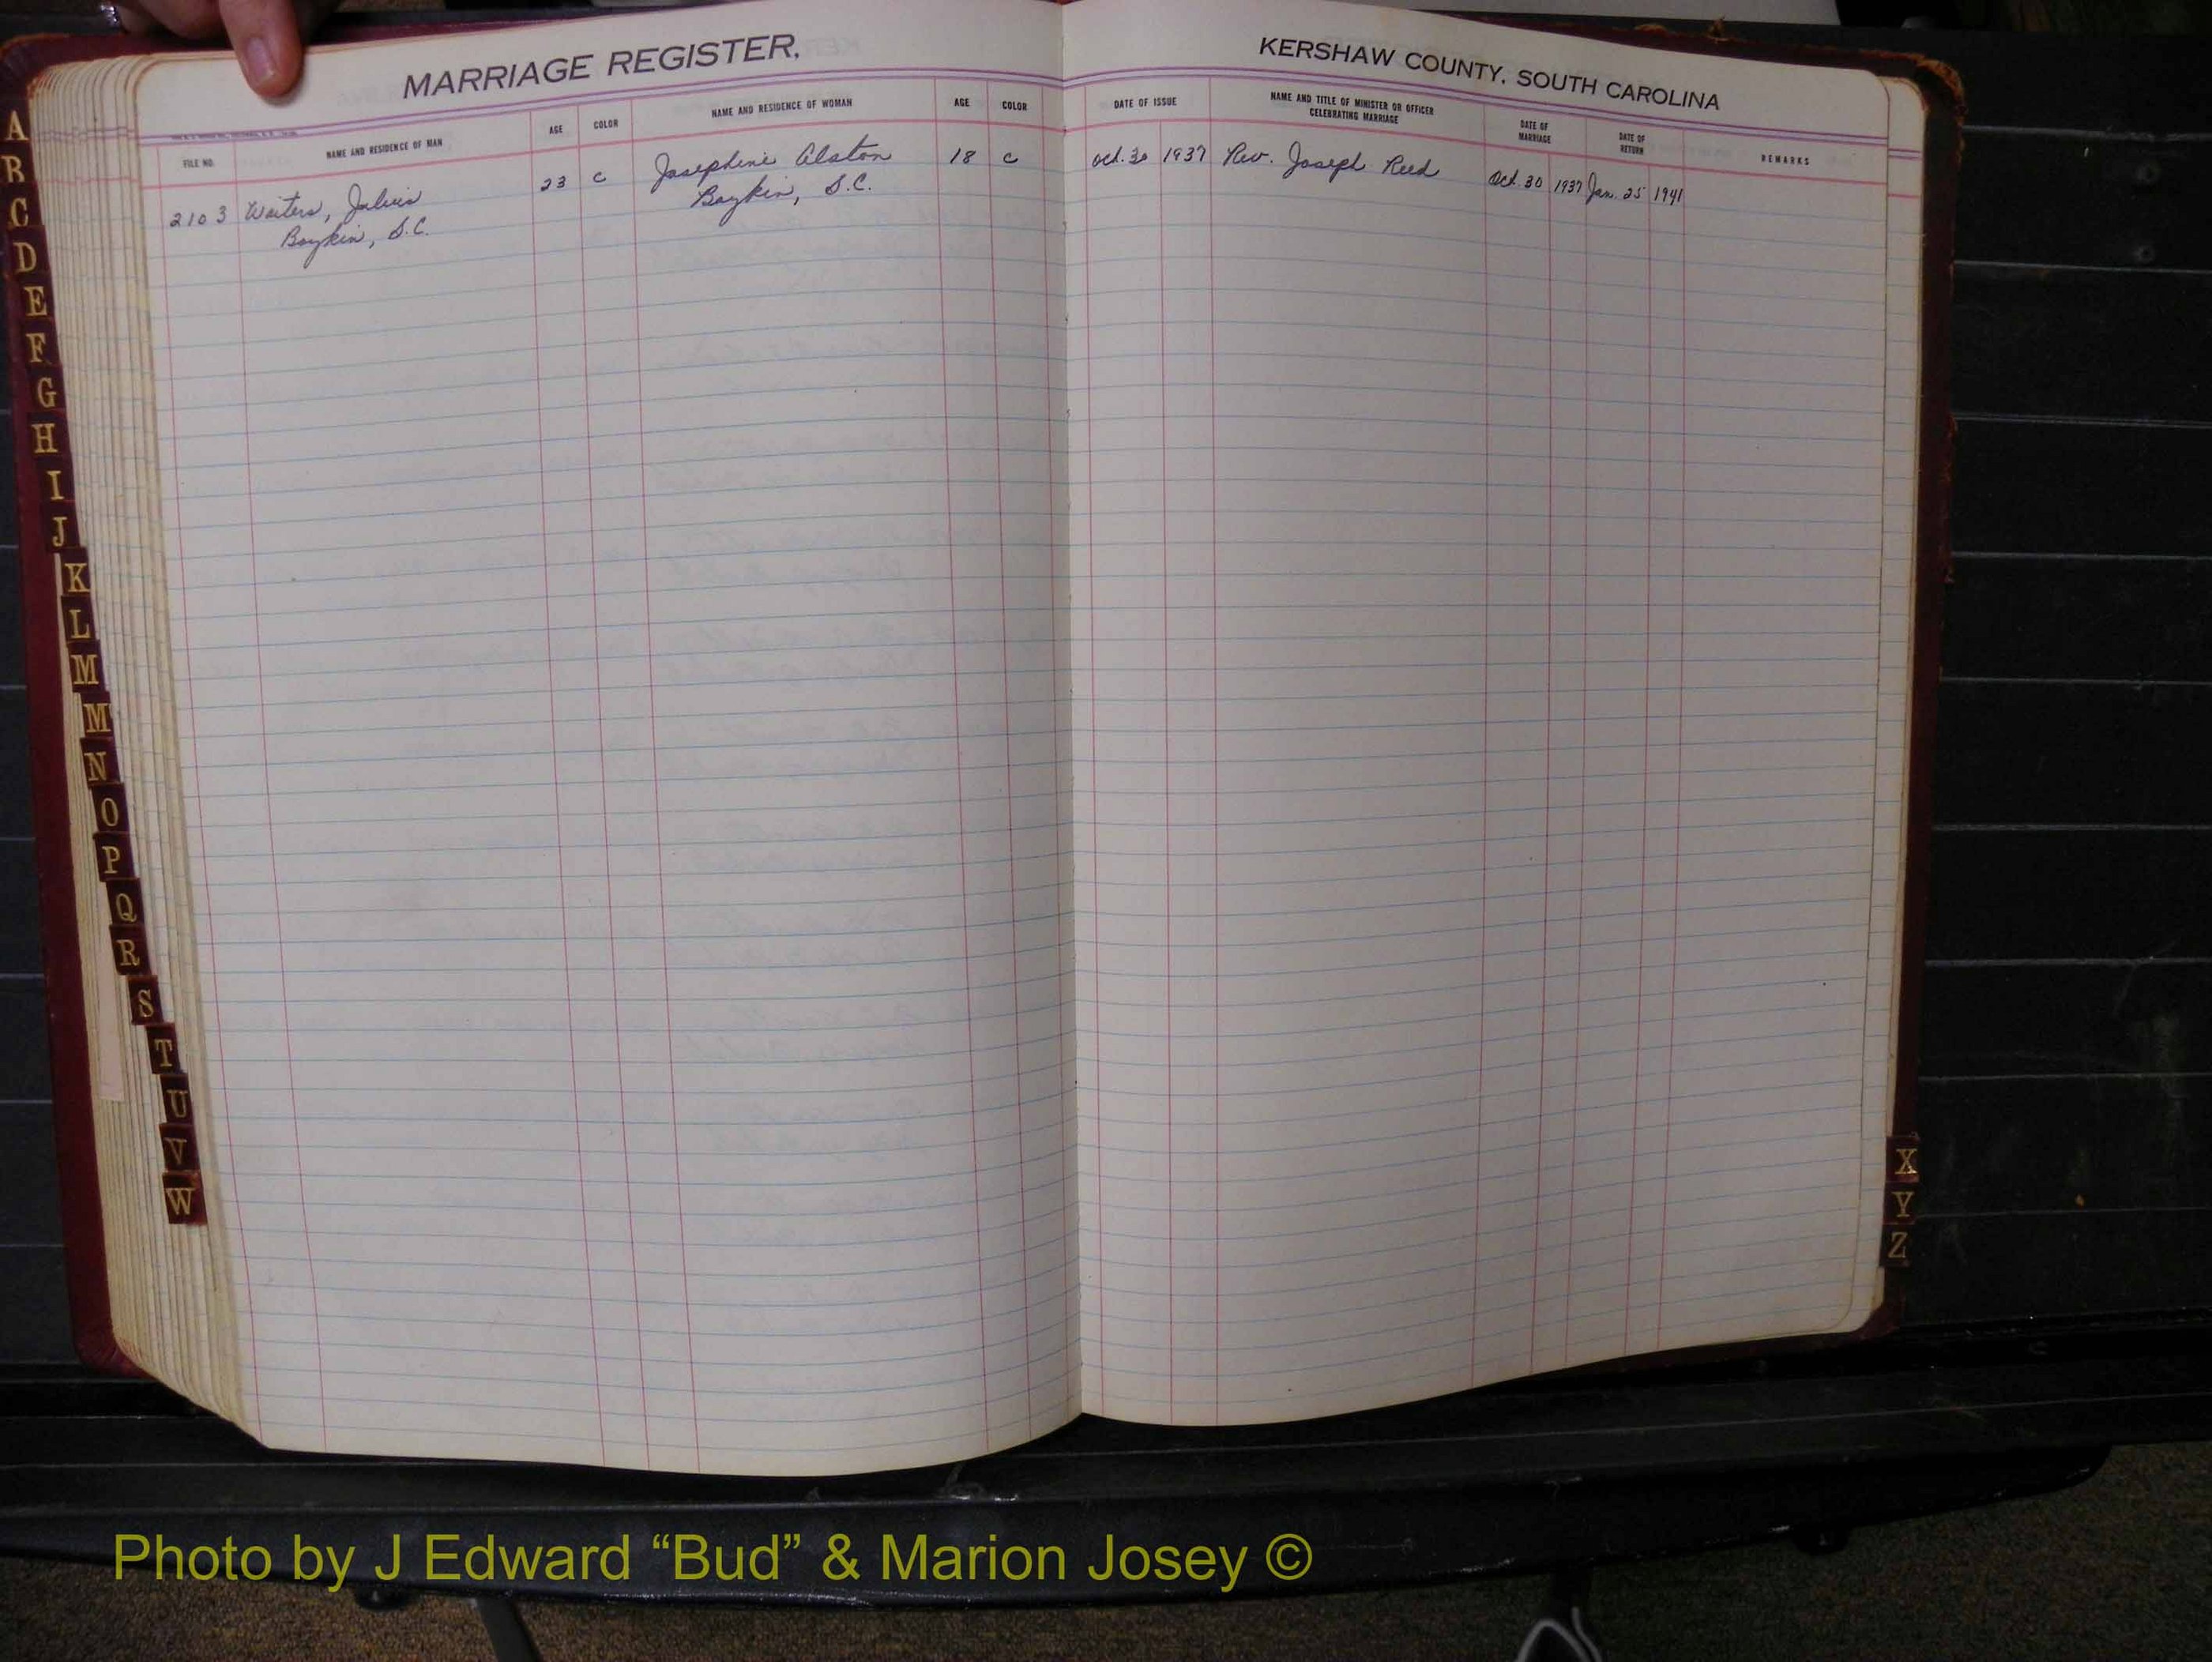 MARRIAGE REGISTER,
KERSHAW COUNTY, SOUTH CAROLINA
FILE NO.
NAME AND RESIDENCE OF MAN
AGE
COLOR
NAME AND RESIDENCE OF WOMAN
AGE
COLOR
DATE OF ISSUE
NAME AND TITLE OF MINISTER OR OFFICER
CELEBRATING MARRIAGE
DATE OF
MARRIAGE
DATE OF
RETURN
REMARKS
2103 Waiters, Julius 23 C Josephine Alston 18 C Oct. 30 1937 Rev. Joseph Reed Oct. 30 1937 Jan. 25 1941
Boykin, S.C. Boykin, S.C.
A
B
C
D
E
F
G
H
I
J
K
L
M
M
N
O
P
Q
R
S
T
U
V
W
X
Y
Z
Photo by J Edward “Bud” & Marion Josey ©